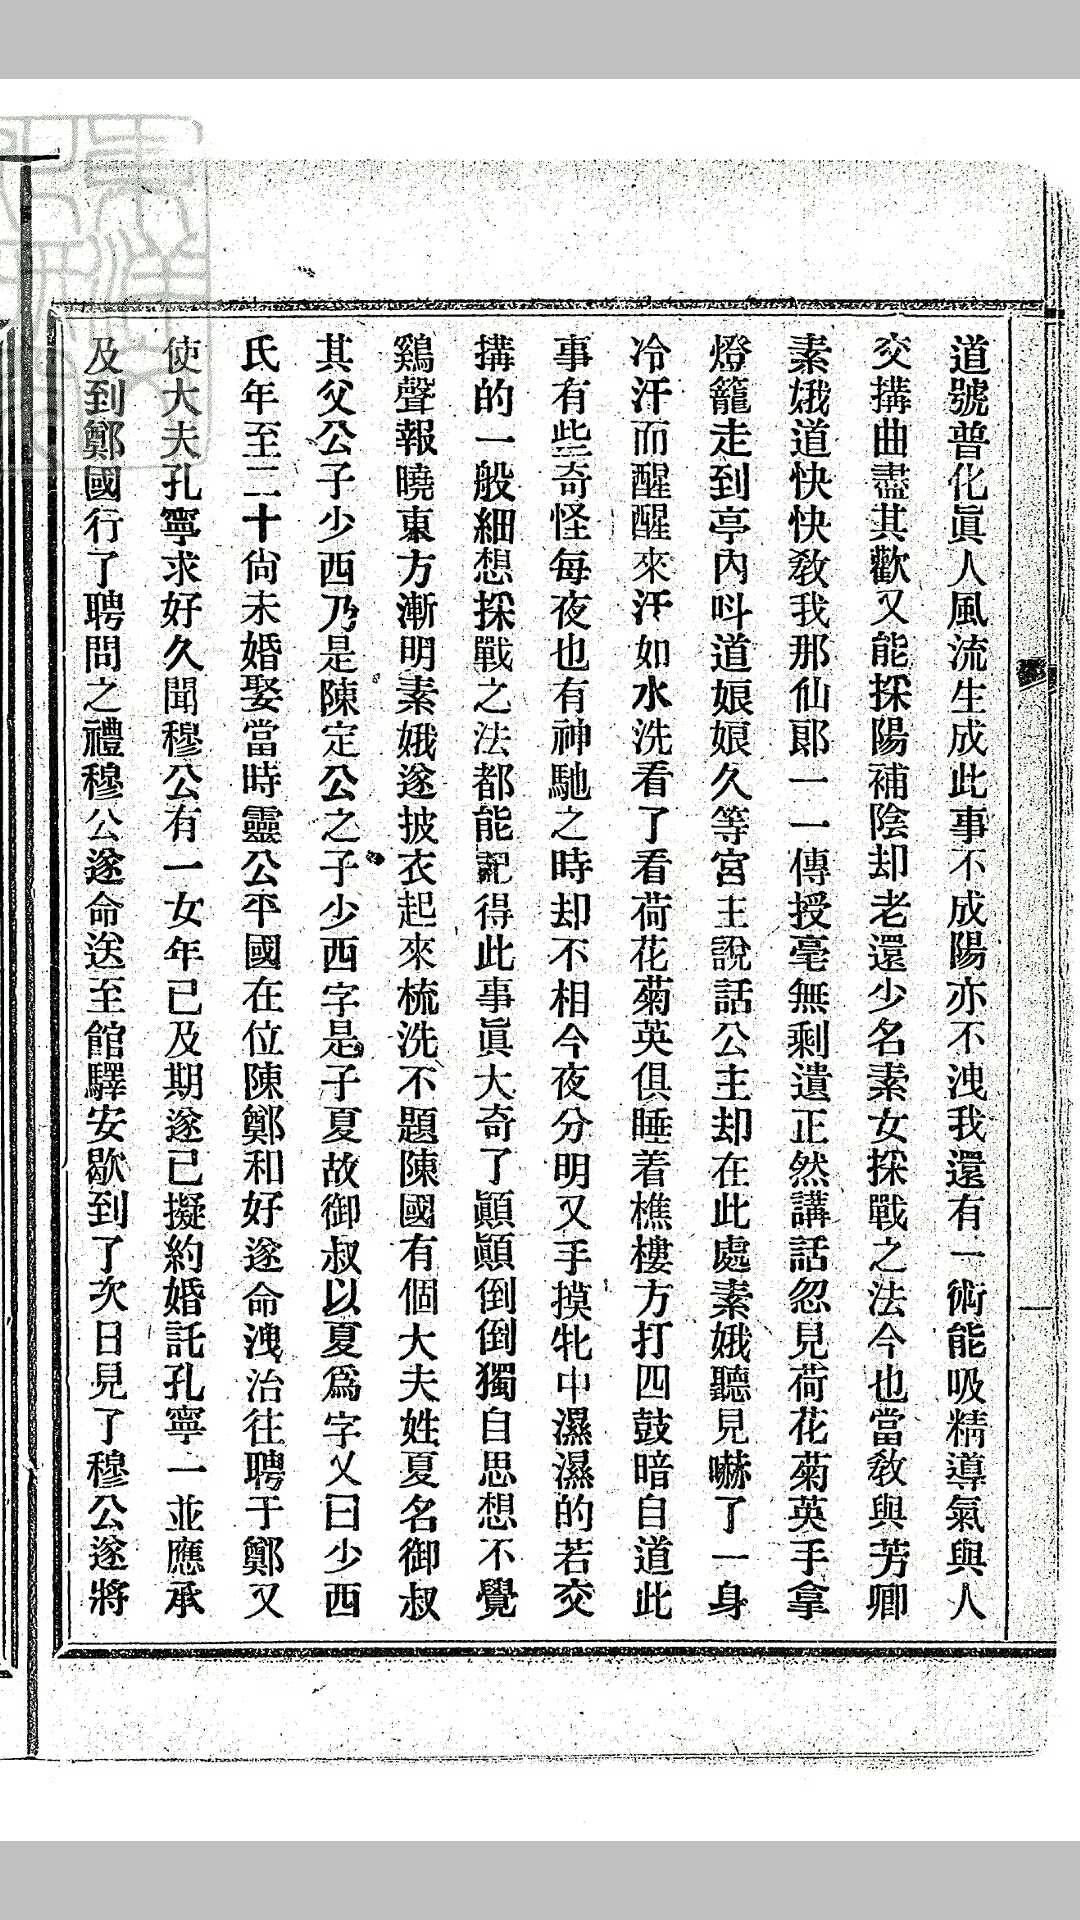 道號普化眞人風流生成此事不成陽亦不洩我還有一術能吸精導氣與人
交搆曲盡其歡又能採陽補陰却老還少名素女採戰之法今也當敎與芳卿
素娥道快快敎我那仙郞一一傳授毫無剩遺正然講話忽見荷花菊英手拿
燈籠走到亭內呌道娘娘久等宮主說話公主却在此處素娥聽見嚇了一身
冷汗而醒醒來汗如水洗看了看荷花菊英俱睡着樵樓方打四鼓暗自道此
事有些奇怪每夜也有神馳之時却不相今夜分明又手摸牝中濕濕的若交
搆的一般細想採戰之法都能記得此事眞大奇了顚顚倒倒獨自思想不覺
鷄聲報曉東方漸明素娥遂披衣起來梳洗不題陳國有個大夫姓夏名御叔
其父公子少西乃是陳定公之子少西字是子夏故御叔以夏爲字又曰少西
氏年至二十尙未婚娶當時靈公平國在位陳鄭和好遂命洩治往聘于鄭又
使大夫孔寧求好久聞穆公有一女年已及期遂已擬約婚託孔寧一並應承
及到鄭國行了聘問之禮穆公遂命送至館驛安歇到了次日見了穆公遂將